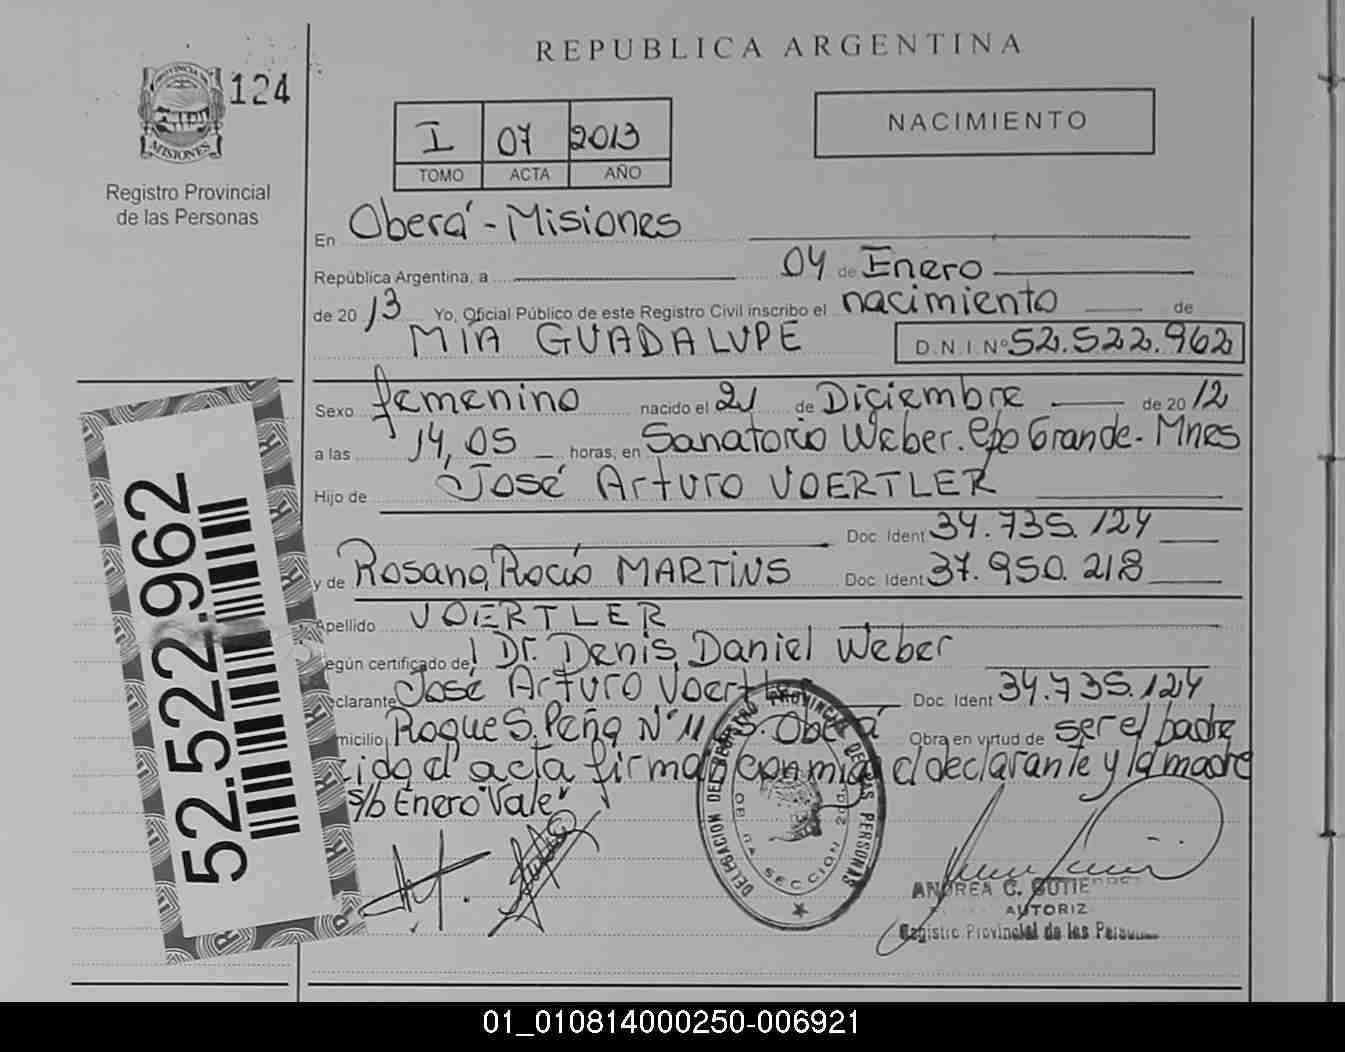 REPUBLICA ARGENTINA
PROVINCIA DE
MISIONES
124
Registro Provincial
de las Personas
I 07 2013
TOMO ACTA AÑO
NACIMIENTO
En Oberá - Misiones
República Argentina, a 04 de Enero
de 2013 Yo, Oficial Público de este Registro Civil inscribo el nacimiento de
MIA GUADALUPE D.N.I. Nº 52.522.962
Sexo femenino nacido el 21 de Diciembre de 2012
a las 14,05 horas, en Sanatorio Weber. Cpo Grande - Mnes
Hijo de José Arturo VOERTLER
Doc. Ident 34.735.124
y de Rosana Rocio MARTINS Doc. Ident 37.950.218
Apellido VOERTLER
egún certificado de Dr. Denis Daniel Weber
eclarante José Arturo Voertler Doc. Ident 34.735.124
micilio Roque S. Peña Nº 115. Oberá Obra en virtud de ser el padre
ida el acta firman conmigo el declarante y la madre
s/b Enero "Vale"
52.522.962
DELEGACION DEL REGISTRO PROVINCIAL DE LAS PERSONAS
SECCION
ANDREA C. GUTIE
AUTORIZ
Registro Provincial de las Perso
01_010814000250-006921